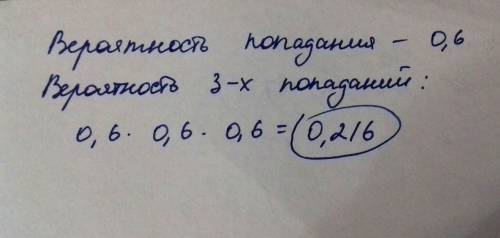 Вероятность попадания – 0,6
Вероятность 3-х попаданий:
0,6 · 0,6 · 0,6 = 0,216